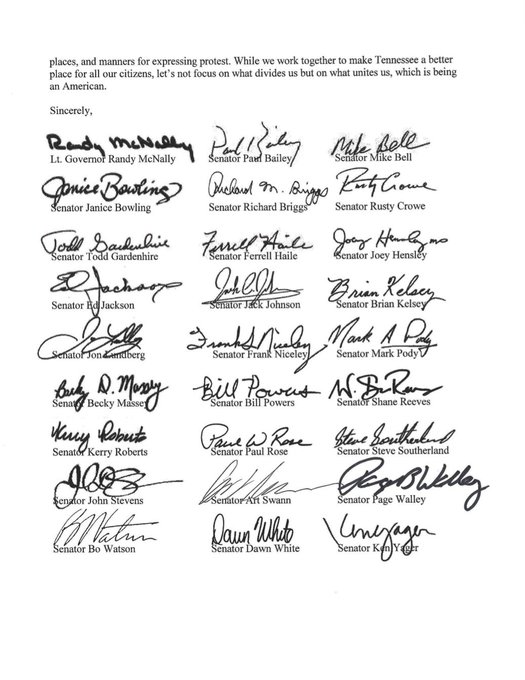 places, and manners for expressing protest. While we work together to make Tennessee a better
place for all our citizens, let's not focus on what divides us but on what unites us, which is being
an American.
Sincerely,
Randy McNally Paul Bailey Mike Bell
Lt. Governor Randy McNally Senator Paul Bailey Senator Mike Bell
Janice Bowling Richard M. Briggs Rusty Crowe
Senator Janice Bowling Senator Richard Briggs Senator Rusty Crowe
Todd Gardenhire Ferrell Haile Joey Hensley MD
Senator Todd Gardenhire Senator Ferrell Haile Senator Joey Hensley
Ed Jackson Brian Kelsey
Senator Ed Jackson Senator Jack Johnson Senator Brian Kelsey
Frank S Niceley Mark A Pody
Senator Jon Lundberg Senator Frank Niceley Senator Mark Pody
Becky D. Massey Bill Powers W. Shane Reeves
Senator Becky Massey Senator Bill Powers Senator Shane Reeves
Kerry Roberts Paul W Rose Steve Southerland
Senator Kerry Roberts Senator Paul Rose Senator Steve Southerland
Page B Walley
Senator John Stevens Senator Art Swann Senator Page Walley
Bo Watson Dawn White Ken Yager
Senator Bo Watson Senator Dawn White Senator Ken Yager